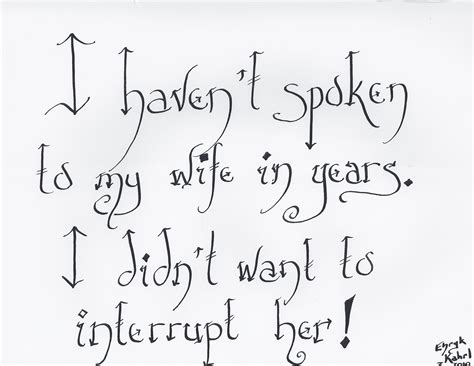 I haven't spoken
to my wife in years.
I didn't want to
interrupt her!
Ehryk
Kahrl